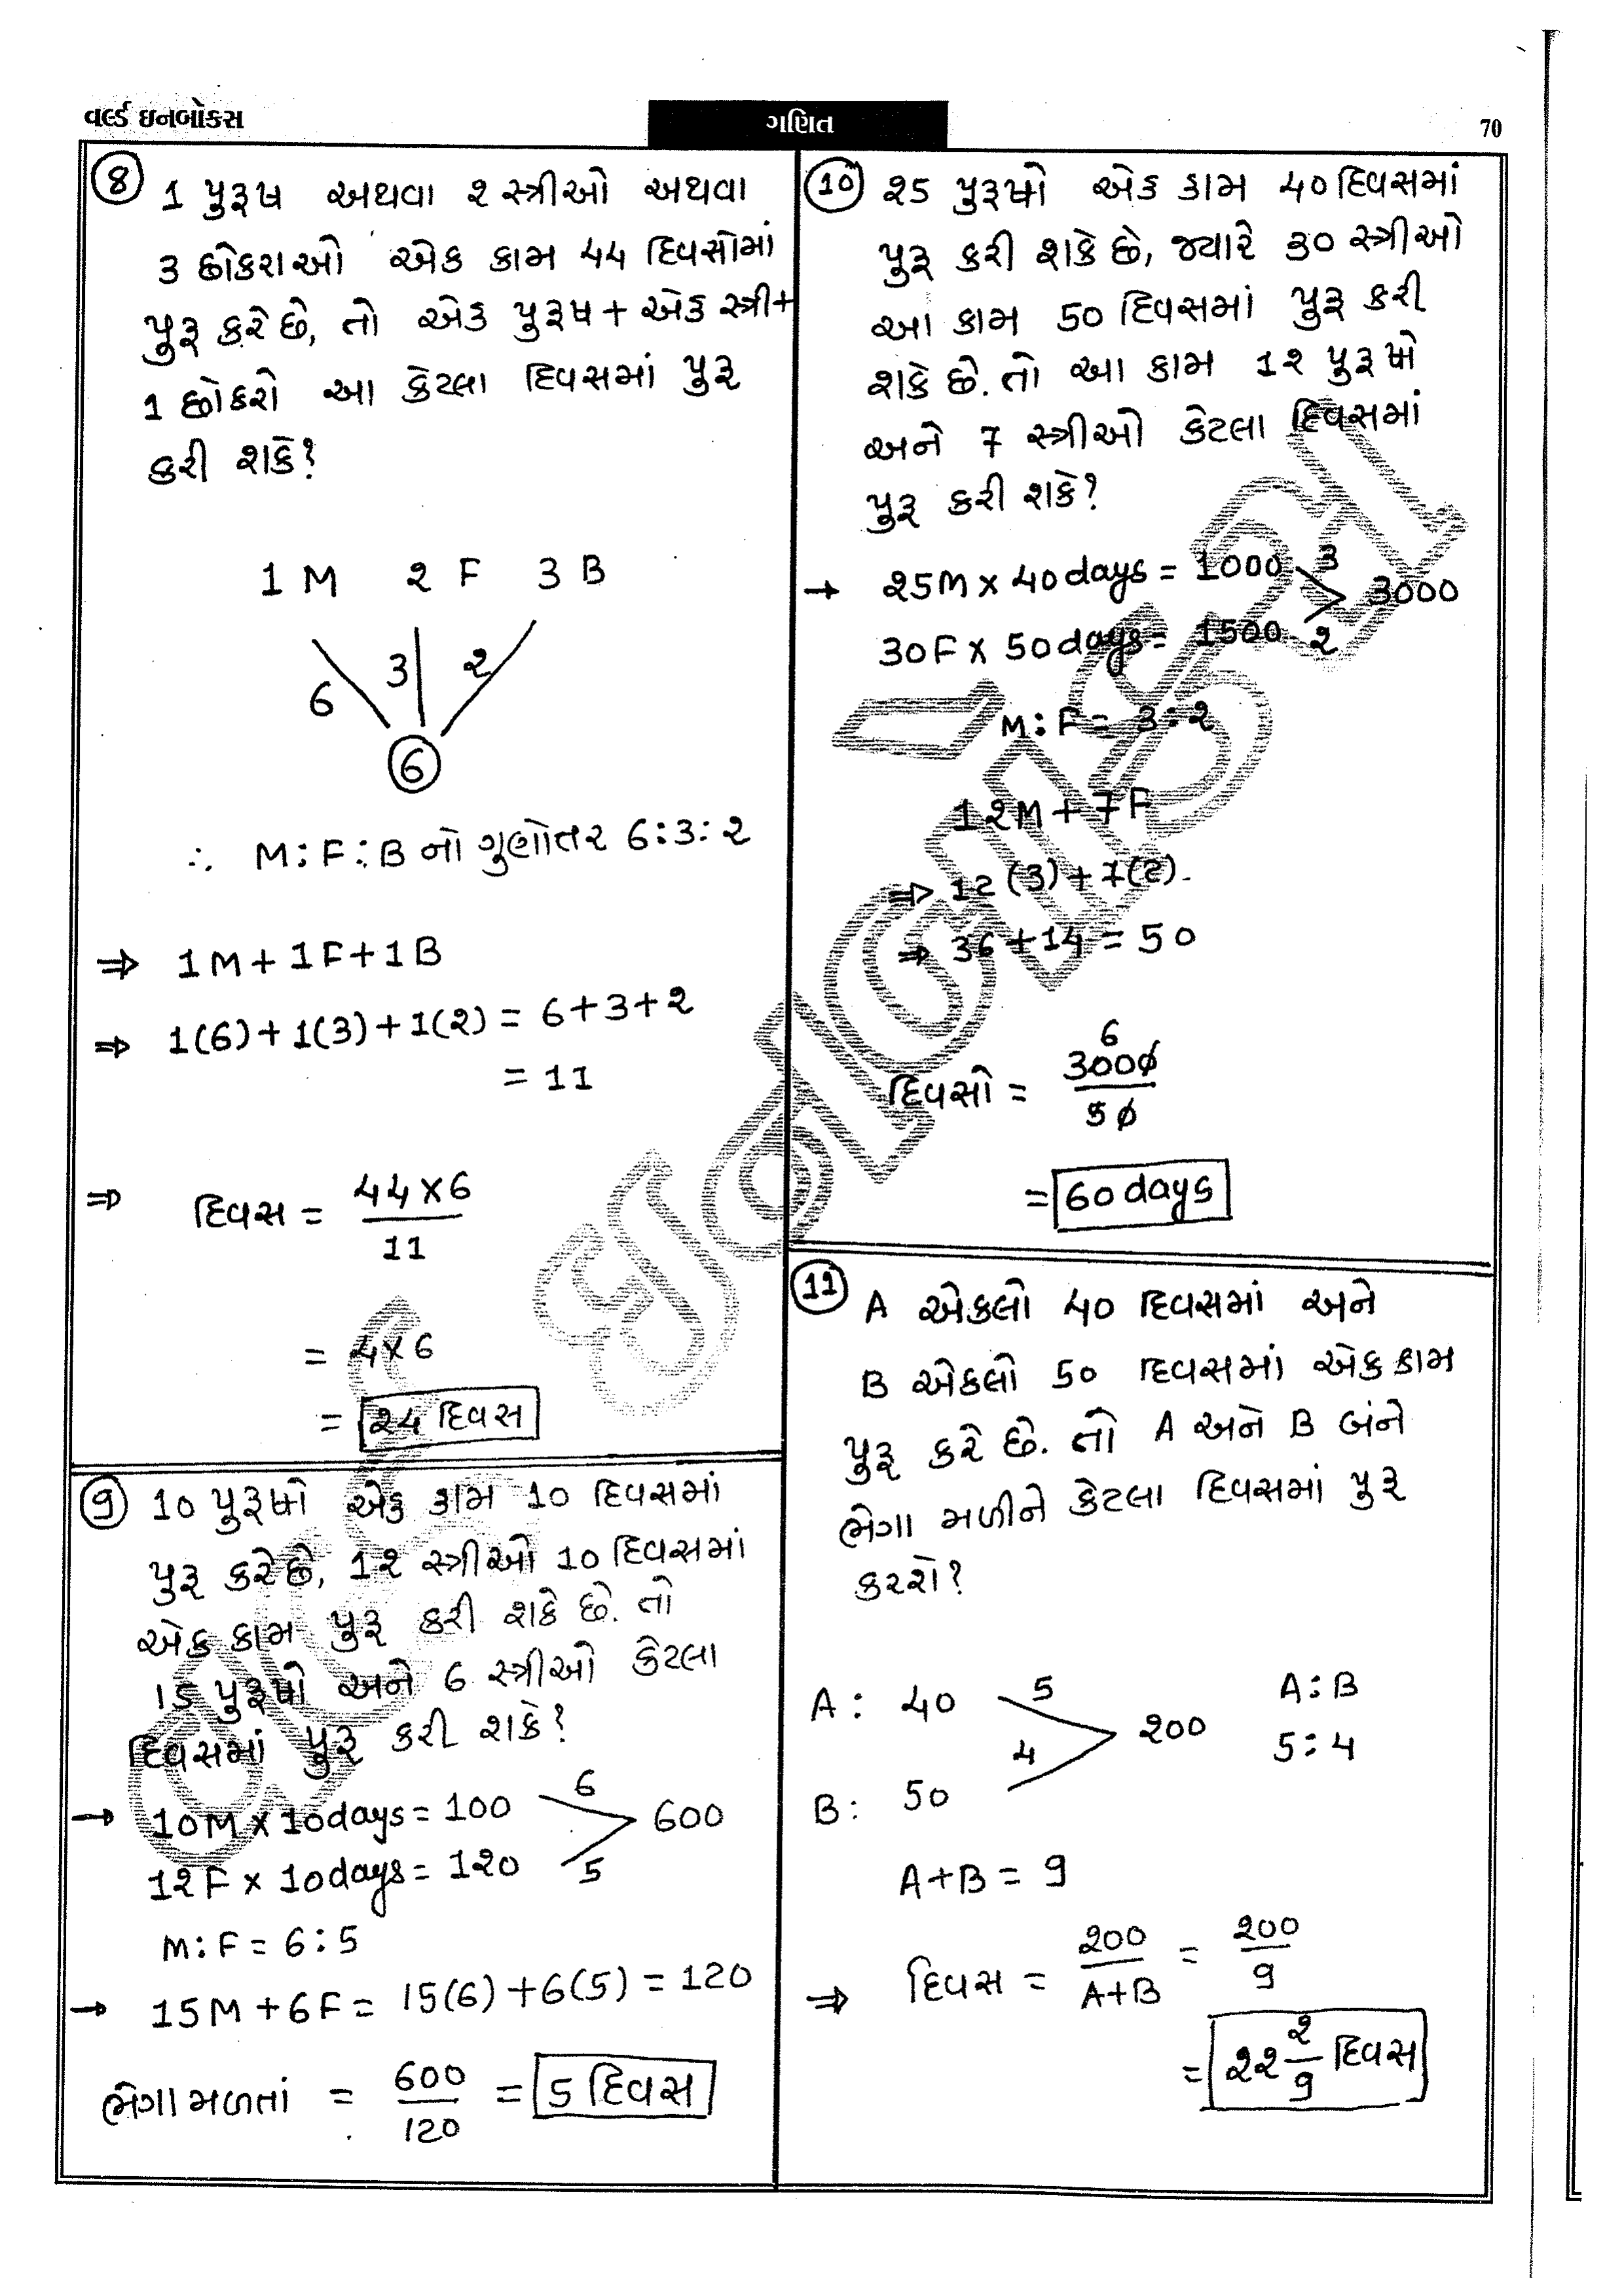 વર્લ્ડ ઇનબોક્સ
ગણિત
70
8 1 પુરૂષ અથવા 2 સ્ત્રીઓ અથવા
3 છોકરાઓ એક કામ 44 દિવસોમાં
પુરૂ કરે છે, તો એક પુરૂષ + એક સ્ત્રી +
1 છોકરો આ કેટલા દિવસમાં પુરૂ
કરી શકે?
1 M 2 F 3 B
6 3 2
6
∴ M:F:B નો ગુણોતર 6:3:2
⇒ 1M+1F+1B
⇒ 1(6)+1(3)+1(2) = 6+3+2
= 11
⇒ દિવસ = 44×6
11
= 4×6
= 24 દિવસ
9 10 પુરૂષો એક કામ 10 દિવસમાં
પુરૂ કરે છે, 12 સ્ત્રીઓ 10 દિવસમાં
એક કામ પુરૂ કરી શકે છે. તો
15 પુરૂષો અને 6 સ્ત્રીઓ કેટલા
દિવસમાં પુરૂ કરી શકે?
→ 10M × 10days = 100 6
600
12F × 10days = 120 5
M:F = 6:5
→ 15M+6F = 15(6)+6(5) = 120
ભેગા મળતાં = 600 = 5 દિવસ
120
10 25 પુરૂષો એક કામ 40 દિવસમાં
પુરૂ કરી શકે છે, જ્યારે 30 સ્ત્રીઓ
આ કામ 50 દિવસમાં પુરૂ કરી
શકે છે. તો આ કામ 12 પુરૂષો
અને 7 સ્ત્રીઓ કેટલા દિવસમાં
પુરૂ કરી શકે?
→ 25M × 40days = 1000 3
3000
30F × 50days = 1500 2
M:F = 3:2
12M+7F
⇒ 12(3)+7(2)
⇒ 36+14 = 50
6
દિવસો = 3000
50
= 60 days
11 A એકલો 40 દિવસમાં અને
B એકલો 50 દિવસમાં એક કામ
પુરૂ કરે છે. તો A અને B બંને
ભેગા મળીને કેટલા દિવસમાં પુરૂ
કરશે?
A: 40 5 A:B
4 200 5:4
B: 50
A+B = 9
⇒ દિવસ = 200 = 200
A+B 9
= 22 2/9 દિવસ